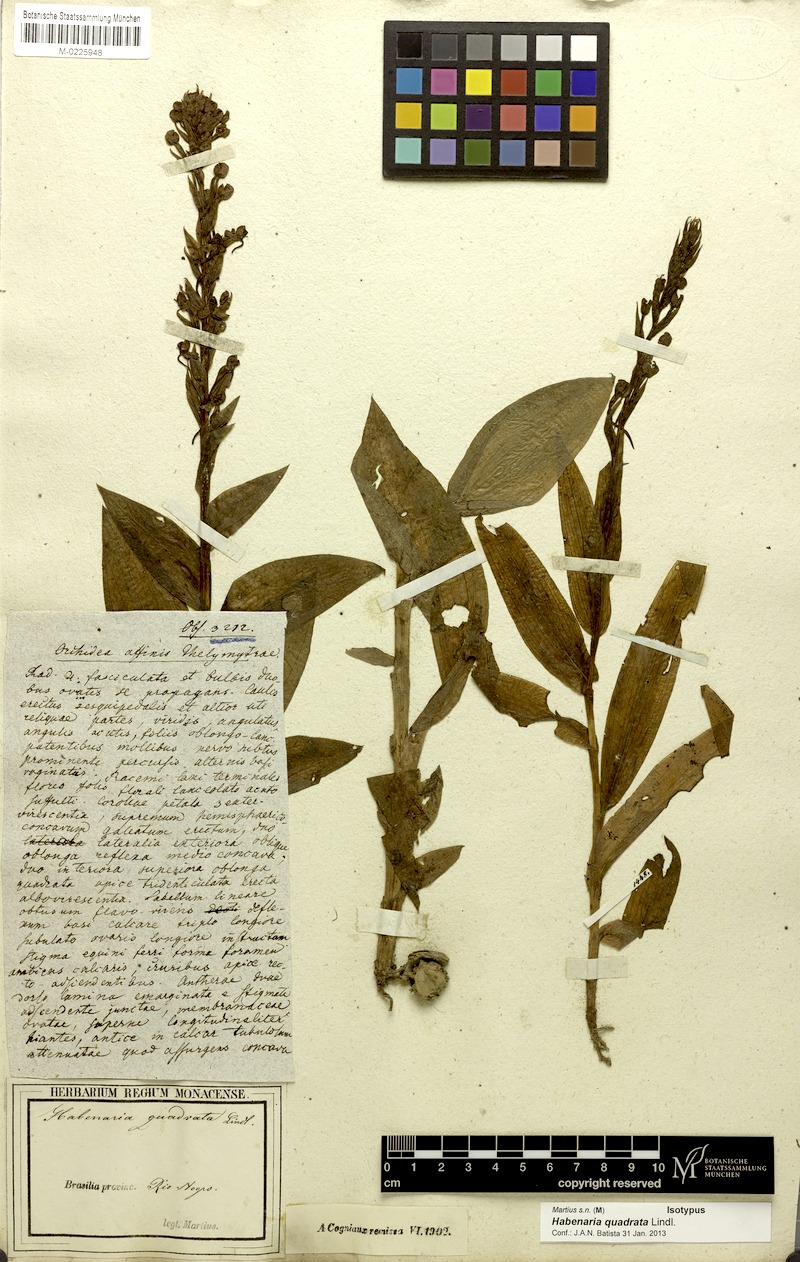 Botanische Staatssammlung München
M-0225948
Obs. 3212.
Orchidea affinis Thelymytrae
Rad. 2. fasciculata et bulbis duo
bus ovatis se propagans. Caulis
erectus sesquipedalis et altior uti
reliquae partes, viridis, angulatus
angulis acutis, foliis oblongo-lanc.
patentibus mollibus nervo subtus
prominente percursis, alternis basi
vaginatis. Racemi laxi terminales
flores folio florali lanceolato acuto
suffulti. Corollae petala 5 exter-
virescentia, supremum hemisphaerico-
concavum galeatum erectum, duo
lateralia exteriora oblique
oblonga reflexa medio concava.
duo interiora superiora oblonga
quadrata apice tridenticulata erecta
albovirescentia. Labellum lineare
obtusum flavo-virens defle-
xum basi calcare triplo longiore
subulato ovario longiore instructum
Stigma equini ferri forma foramen
ambiens calcaris, cruribus apice rec-
to-adscendentibus. Antherae duae
dorso lamina emarginata e stigmate
adscendente junctae, membranaceae
ovatae, superne longitudinaliter
hiantes, antice in calcar tubulosum
attenuatae quod assurgens concava
HERBARIUM REGIUM MONACENSE.
Habenaria quadrata Lindl.
Brasilia provinc. Rio Negro.
legt. Martius.
A Cogniaux remissa VI. 1902.
1448.
0 1 2 3 4 5 6 7 8 9 10
cm
copyright reserved
M
BOTANISCHE
STAATSSAMMLUNG
MÜNCHEN
Martius s.n. (M) Isotypus
Habenaria quadrata Lindl.
Conf.: J.A.N. Batista 31 Jan. 2013